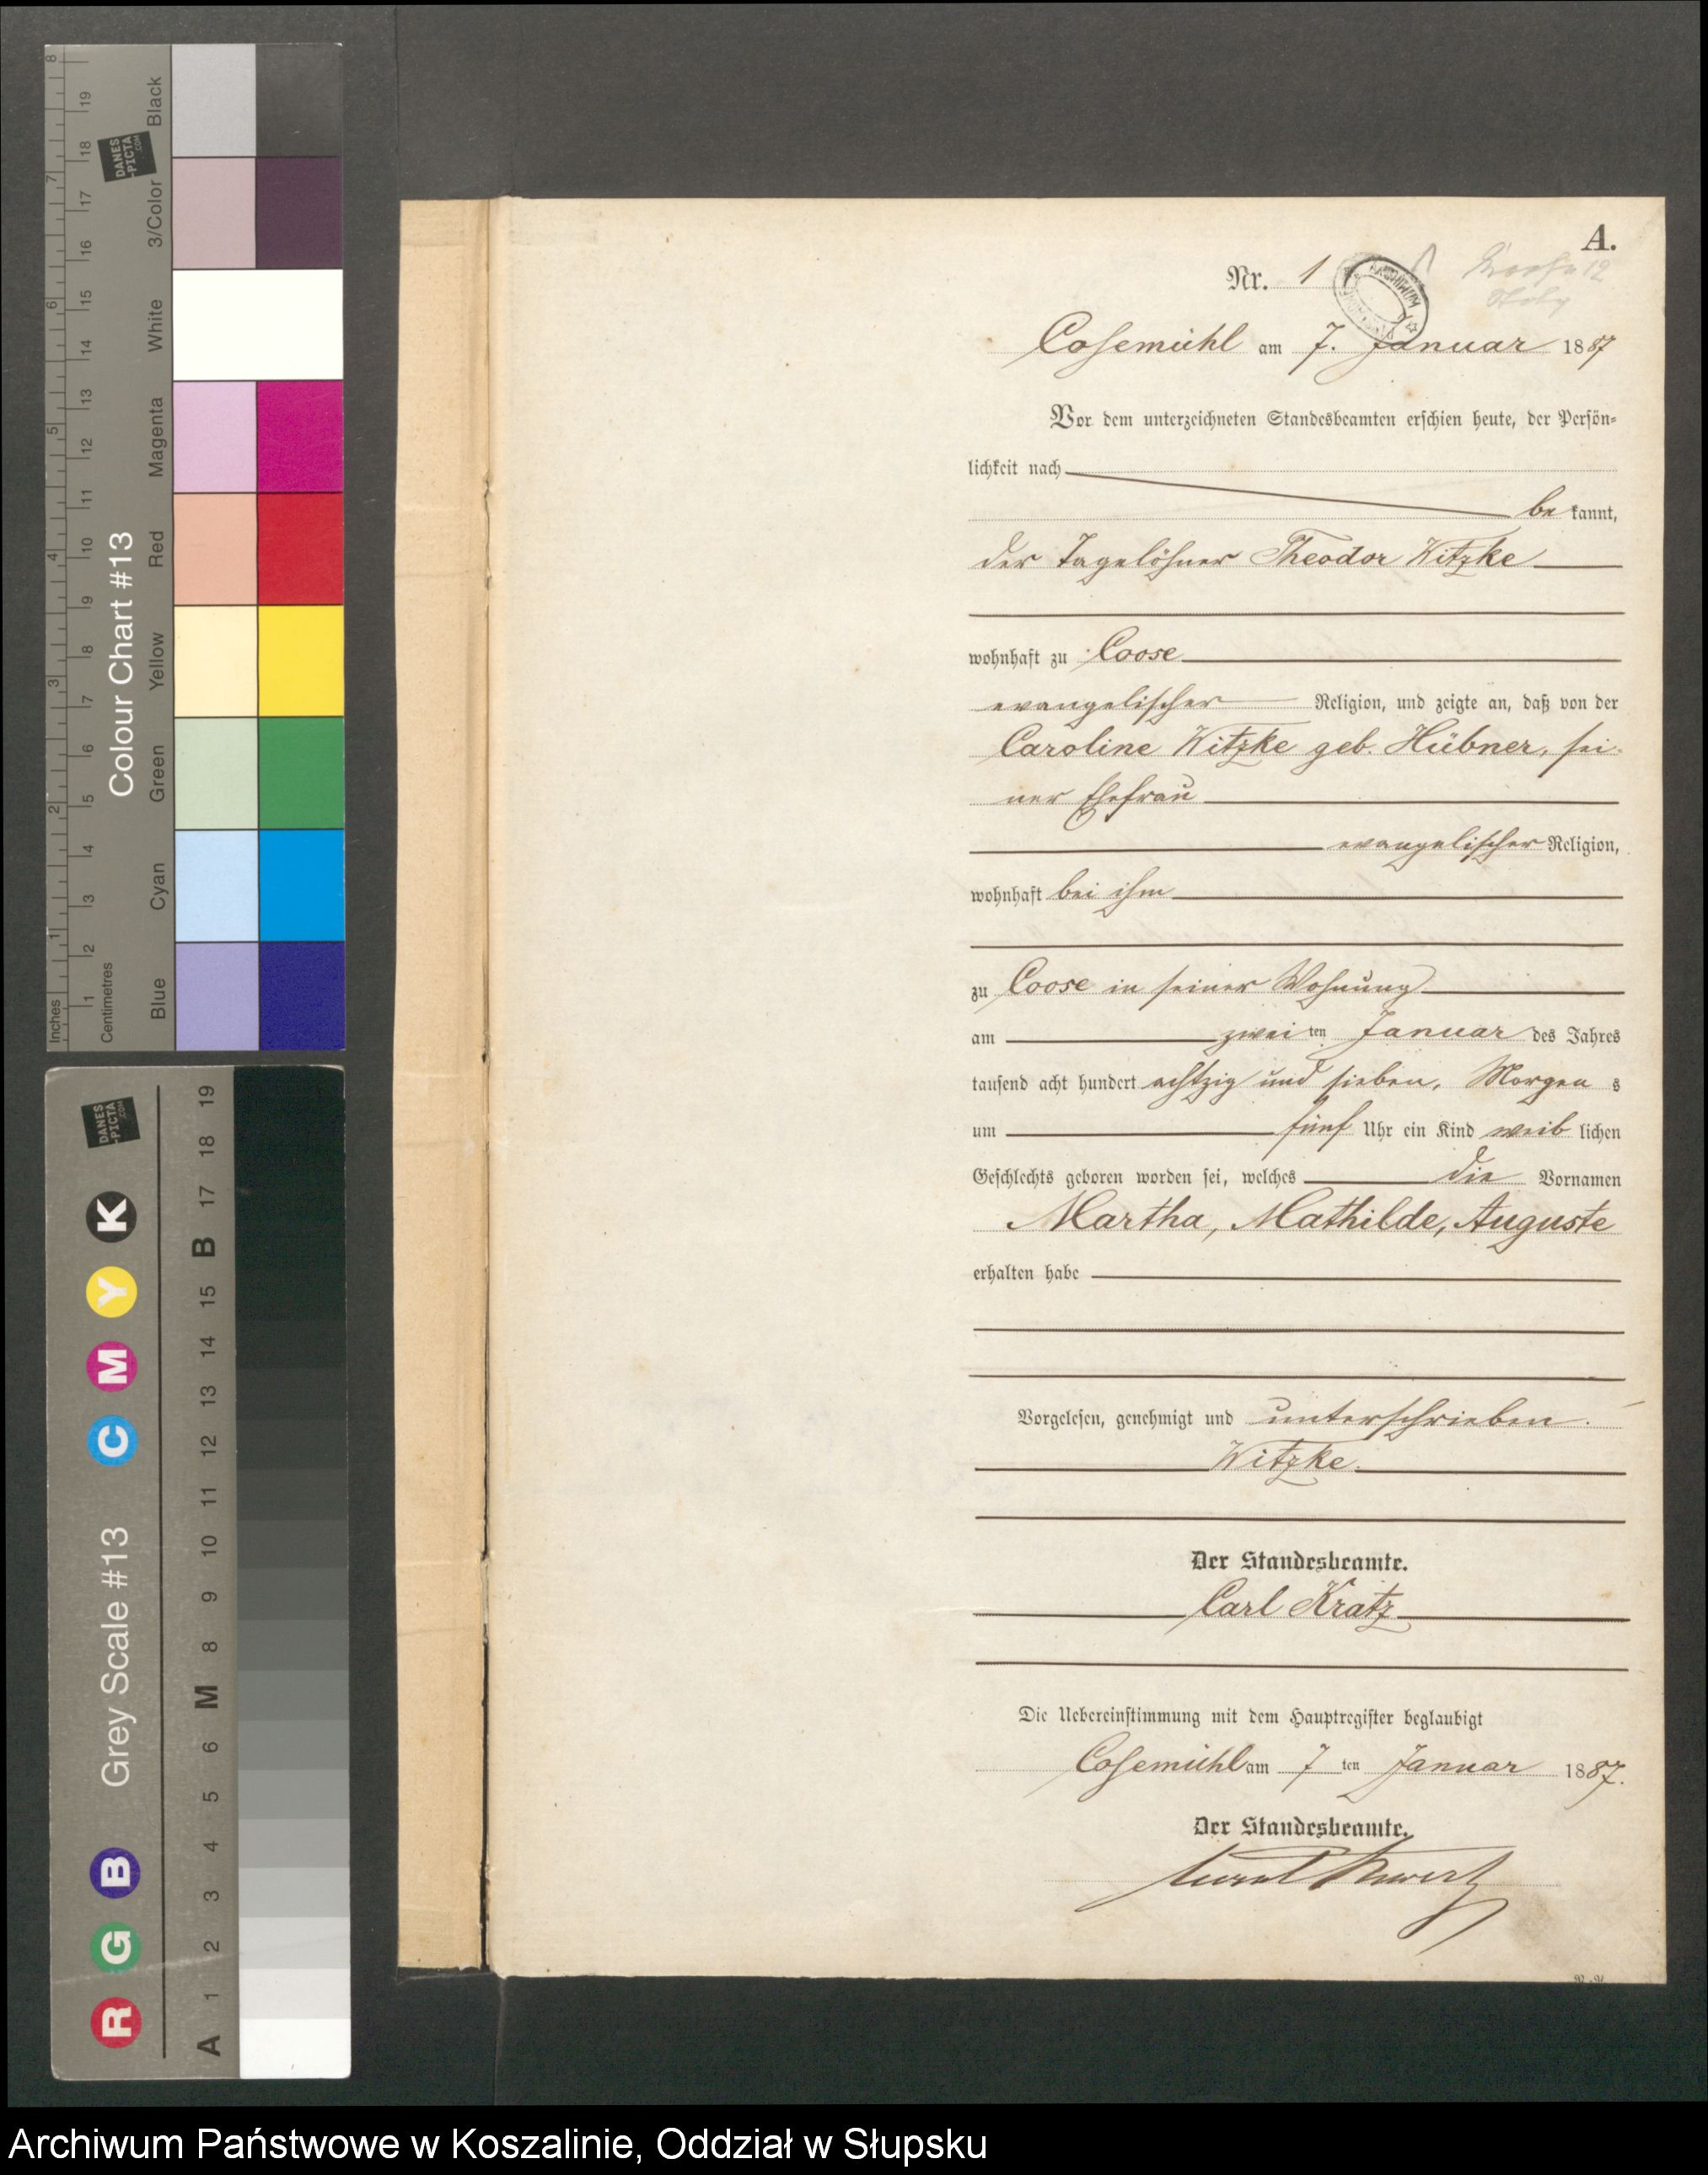 8
7
6
5
4
3
2
1
Inches
19
18
17
16
15
14
13
12
11
10
9
8
7
6
5
4
3
2
1
Centimetres
Colour Chart #13
DANES
-PICTA
.COM
Black
3/Color
White
Magenta
Red
Yellow
Green
Cyan
Blue
DANES
-PICTA
.COM
Grey Scale #13
R G B C M Y K
A 1 2 3 4 5 6 M 8 9 10 11 12 13 14 15 B 17 18 19
A.
Nr. 1
Cosemühl am 7. Januar 1887
Vor dem unterzeichneten Standesbeamten erschien heute, der Persön-
lichkeit nach
bekannt,
der Tagelöhner Theodor Witzke
wohnhaft zu Coose
evangelischer Religion, und zeigte an, daß von der
Caroline Witzke geb. Hübner, sei-
ner Ehefrau
evangelischer Religion,
wohnhaft bei ihm
zu Coose in seiner Wohnung
am zweiten Januar des Jahres
tausend acht hundert achtzig und sieben, Morgens
um fünf Uhr ein Kind weiblichen
Geschlechts geboren worden sei, welches die Vornamen
Martha, Mathilde, Auguste
erhalten habe
Vorgelesen, genehmigt und unterschrieben.
Witzke.
Der Standesbeamte.
Carl Kratz
Die Uebereinstimmung mit dem Hauptregister beglaubigt
Cosemühl am 7ten Januar 1887.
Der Standesbeamte.
Archiwum Państwowe w Koszalinie, Oddział w Słupsku